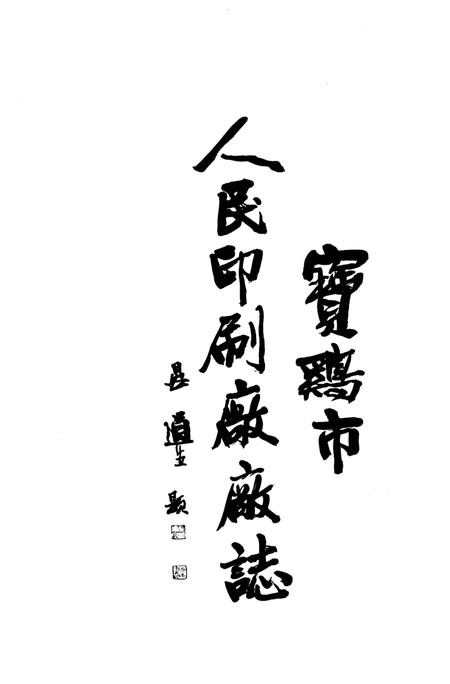 寶鷄市
人民印刷廠廠誌
題